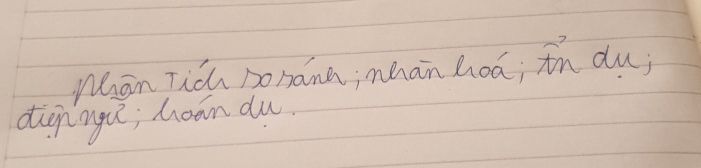 Phân Tích so sánh; nhân hoá; ẩn dụ;
điệp ngữ; hoán dụ.